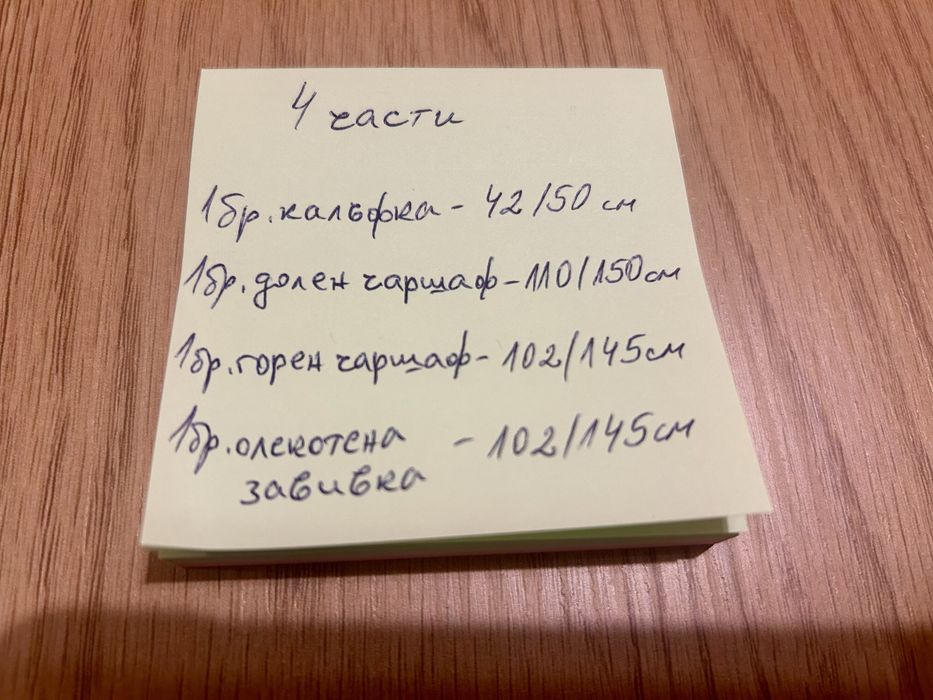 4 части
1бр. калъфка - 42/50 см
1бр. долен чаршаф - 110/150см
1бр. горен чаршаф - 102/145см
1бр. олекотена - 102/145см
завивка